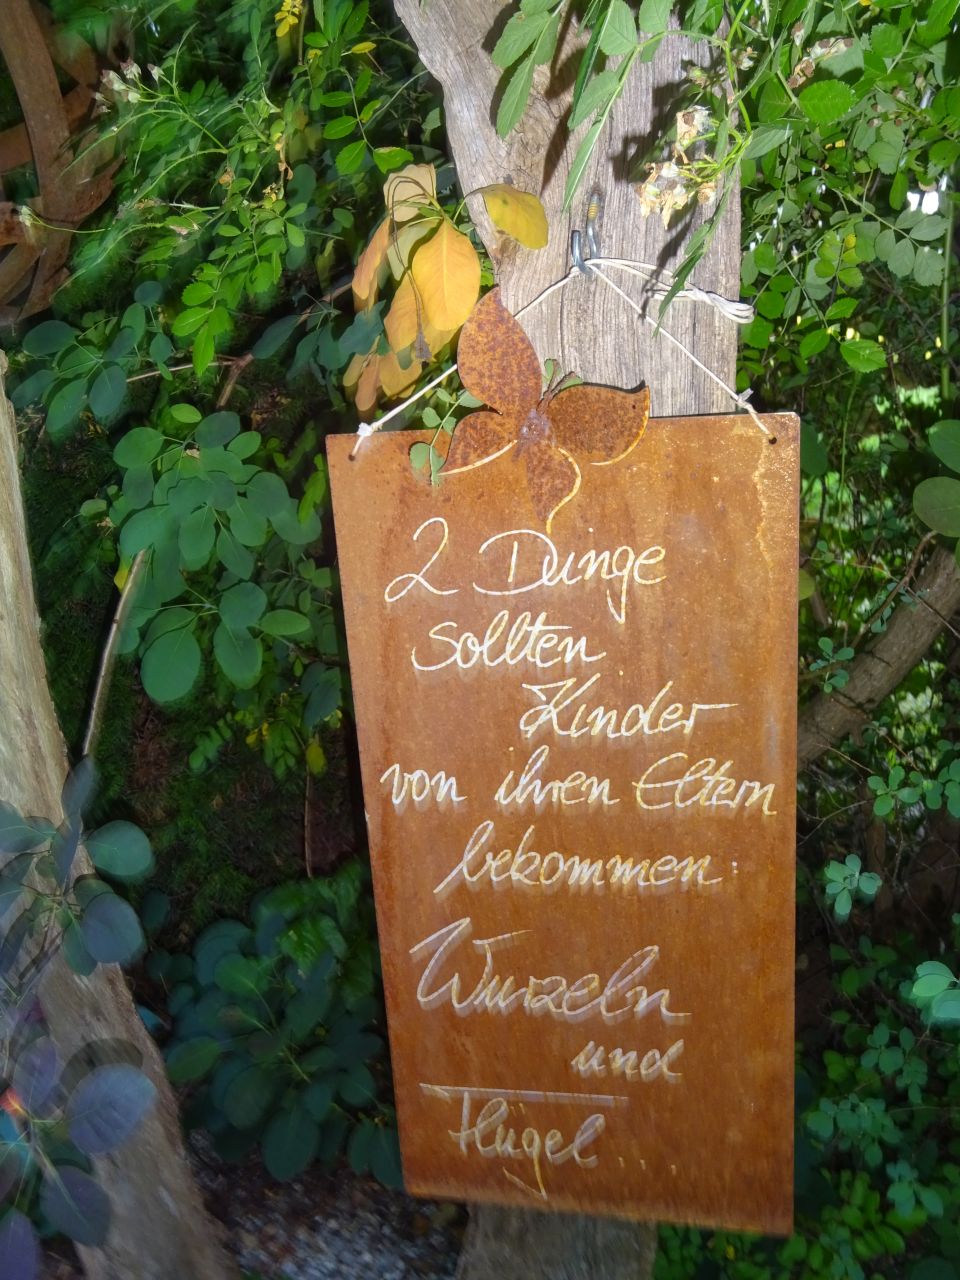 2 Dinge
sollten
Kinder
von ihren Eltern
bekommen:
Wurzeln
und
Flügel....